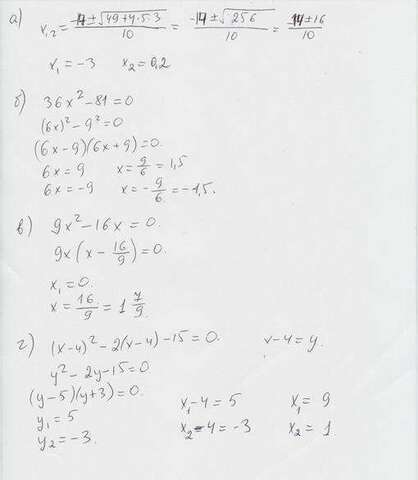 а) x₁,₂ = (-14 ± √(49+4·5·3))/10 = (-14 ± √256)/10 = (14 ± 16)/10
x₁ = -3 x₂ = 0,2
б) 36x² - 81 = 0
(6x)² - 9² = 0
(6x-9)(6x+9) = 0.
6x = 9 x = 9/6 = 1,5
6x = -9 x = -9/6 = -1,5.
в) 9x² - 16x = 0.
9x(x - 16/9) = 0.
x₁ = 0.
x = 16/9 = 1 7/9.
г) (x-4)² - 2(x-4) - 15 = 0. x-4 = y.
y² - 2y - 15 = 0
(y-5)(y+3) = 0. x₁-4 = 5 x₁ = 9
y₁ = 5 x₂-4 = -3 x₂ = 1.
y₂ = -3.